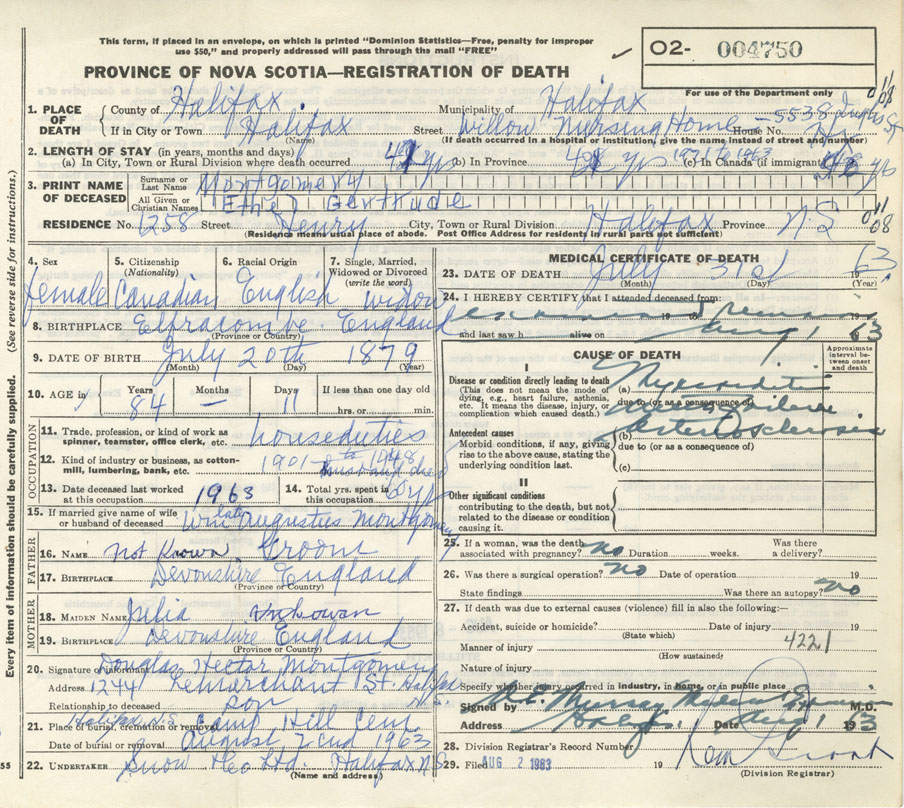 This form, if placed in an envelope, on which is printed "Dominion Statistics—Free, penalty for improper
use $50," and properly addressed will pass through the mail "FREE"
O2- 004750
PROVINCE OF NOVA SCOTIA—REGISTRATION OF DEATH
For use of the Department only
1. PLACE OF DEATH County of Halifax Municipality of Halifax
If in City or Town Halifax Street Willow Nursing Home House No. -5538
(Name) (If death occurred in a hospital or institution, give the name instead of street and number)
2. LENGTH OF STAY (in years, months and days)
(a) In City, Town or Rural Division where death occurred yrs (b) In Province yrs (c) In Canada (if immigrant) yrs
3. PRINT NAME OF DECEASED Surname or Last Name Montgomery
All Given or Christian Names Ethel Gertrude
RESIDENCE No. 1258 Street Henry City, Town or Rural Division Halifax Province N.S
(Residence means usual place of abode. Post Office Address for residents in rural parts not sufficient)
(See reverse side for instructions.)
Every item of information should be carefully supplied.
4. Sex female
5. Citizenship (Nationality) Canadian
6. Racial Origin English
7. Single, Married, Widowed or Divorced (write the word) widow
8. BIRTHPLACE Elfracombe England
(Province or Country)
9. DATE OF BIRTH July 20th 1879
(Month) (Day) (Year)
10. AGE in Years 84 Months — Days 11 If less than one day old hrs. or min.
OCCUPATION
11. Trade, profession, or kind of work as spinner, teamster, office clerk, etc. houseduties
12. Kind of industry or business, as cotton-mill, lumbering, bank, etc. 1901 to 1948 husband died
13. Date deceased last worked at this occupation 1963
14. Total yrs. spent in this occupation yrs
15. If married give name of wife or husband of deceased late Wm Augustus Montgomery
FATHER
16. NAME not Known Groom
17. BIRTHPLACE Devonshire England
(Province or Country)
MOTHER
18. MAIDEN NAME Julia Unknown
19. BIRTHPLACE Devonshire England
(Province or Country)
20. Signature of informant Douglas Hector Montgomery
Address 1244 Lemarchant St. Halifax N.S.
Relationship to deceased son
21. Place of burial, cremation or removal Halifax N.S Camp Hill Cem
Date of burial or removal August 2nd 1963
22. UNDERTAKER Snow & Co Ltd. Halifax N.S
(Name and address)
55
MEDICAL CERTIFICATE OF DEATH
23. DATE OF DEATH July 31st 1963
(Month) (Day) (Year)
24. I HEREBY CERTIFY that I attended deceased from:
examined remains
and last saw h alive on Aug 1 63
CAUSE OF DEATH
Approximate interval between onset and death
I
Disease or condition directly leading to death
(This does not mean the mode of dying, e.g., heart failure, asthenia, etc. It means the disease, injury, or complication which caused death.)
(a) Myocarditis
due to (or as a consequence of)
Antecedent causes
Morbid conditions, if any, giving rise to the above cause, stating the underlying condition last.
(b) Arteriosclerosis
due to (or as a consequence of)
(c)
II
Other significant conditions
contributing to the death, but not related to the disease or condition causing it.
25. If a woman, was the death associated with pregnancy? no Duration weeks. Was there a delivery?
26. Was there a surgical operation? no Date of operation 19
State findings Was there an autopsy? no
27. If death was due to external causes (violence) fill in also the following:—
Accident, suicide or homicide? Date of injury 19
(State which)
Manner of injury 4221
(How sustained)
Nature of injury
Specify whether injury occurred in industry, in home, or in public place
Signed by Murray M.D.
Address Halifax Date Aug 1 1963
28. Division Registrar's Record Number
29. Filed AUG 2 1963 19
(Division Registrar)